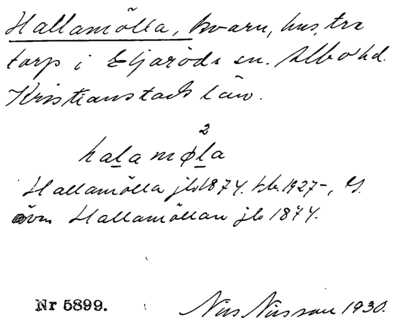 Hallamölla, kvarn, hus, tre
torp i Eljaröds sn. Albo hd.
Kristianstads län.
2
halamøla
Hallamölla jb 1874. kb. 1927-,
även Hallamöllan jb 1874.
Nr 5899. Nils Nilsson 1930.